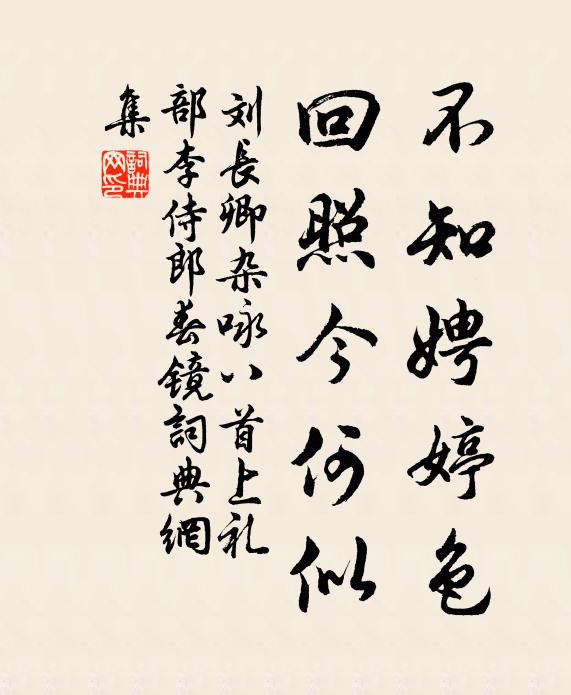 不知娉婷色
回照今何似
刘長卿杂咏八首上礼
部李侍郎春鏡詞典網
集
詞典
网印